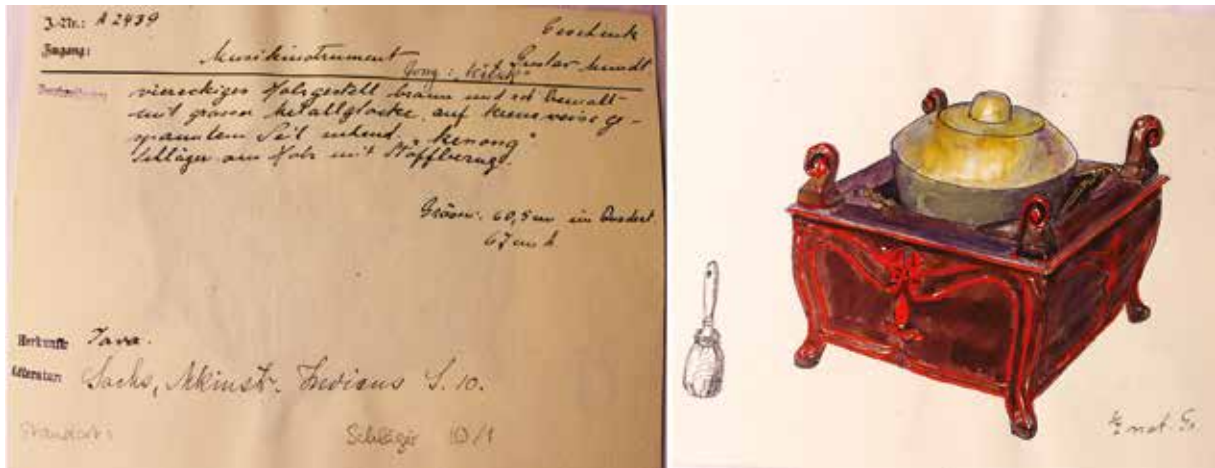 J.-Nr.: A 2439
Geschenk
Zugang:
Gustav Mundt
Musikinstrument
Gong: "
viereckiges Holzgestell braun und rot bemalt
mit grosser Metallglocke, auf kreuzweise ge-
spanntem Seil ruhend. "Kenong"
Schläger aus Holz mit Stoffbezug.
60,5 cm im Quadrat
67 cm h
Herkunft: Java.
Literatur: Sachs, Mkinstr. Indiens S. 10.
Standort:
Schlägel 10/1
nat. Gr.